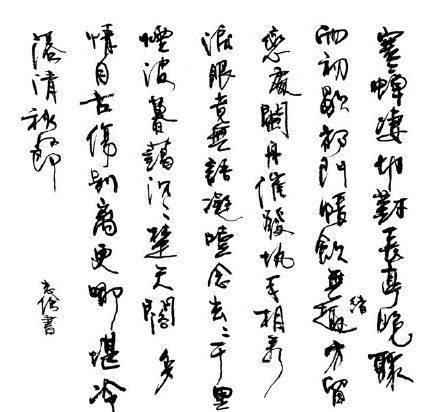 寒蟬凄切對長亭晚驟
雨初歇都門帳飲無趣緒方留
戀處闌舟催發執手相看
淚眼竟無語凝噎念去々千里
煙波暮藹沉々楚天闊多
情自古傷别離更哪堪冷
落清秋節
書